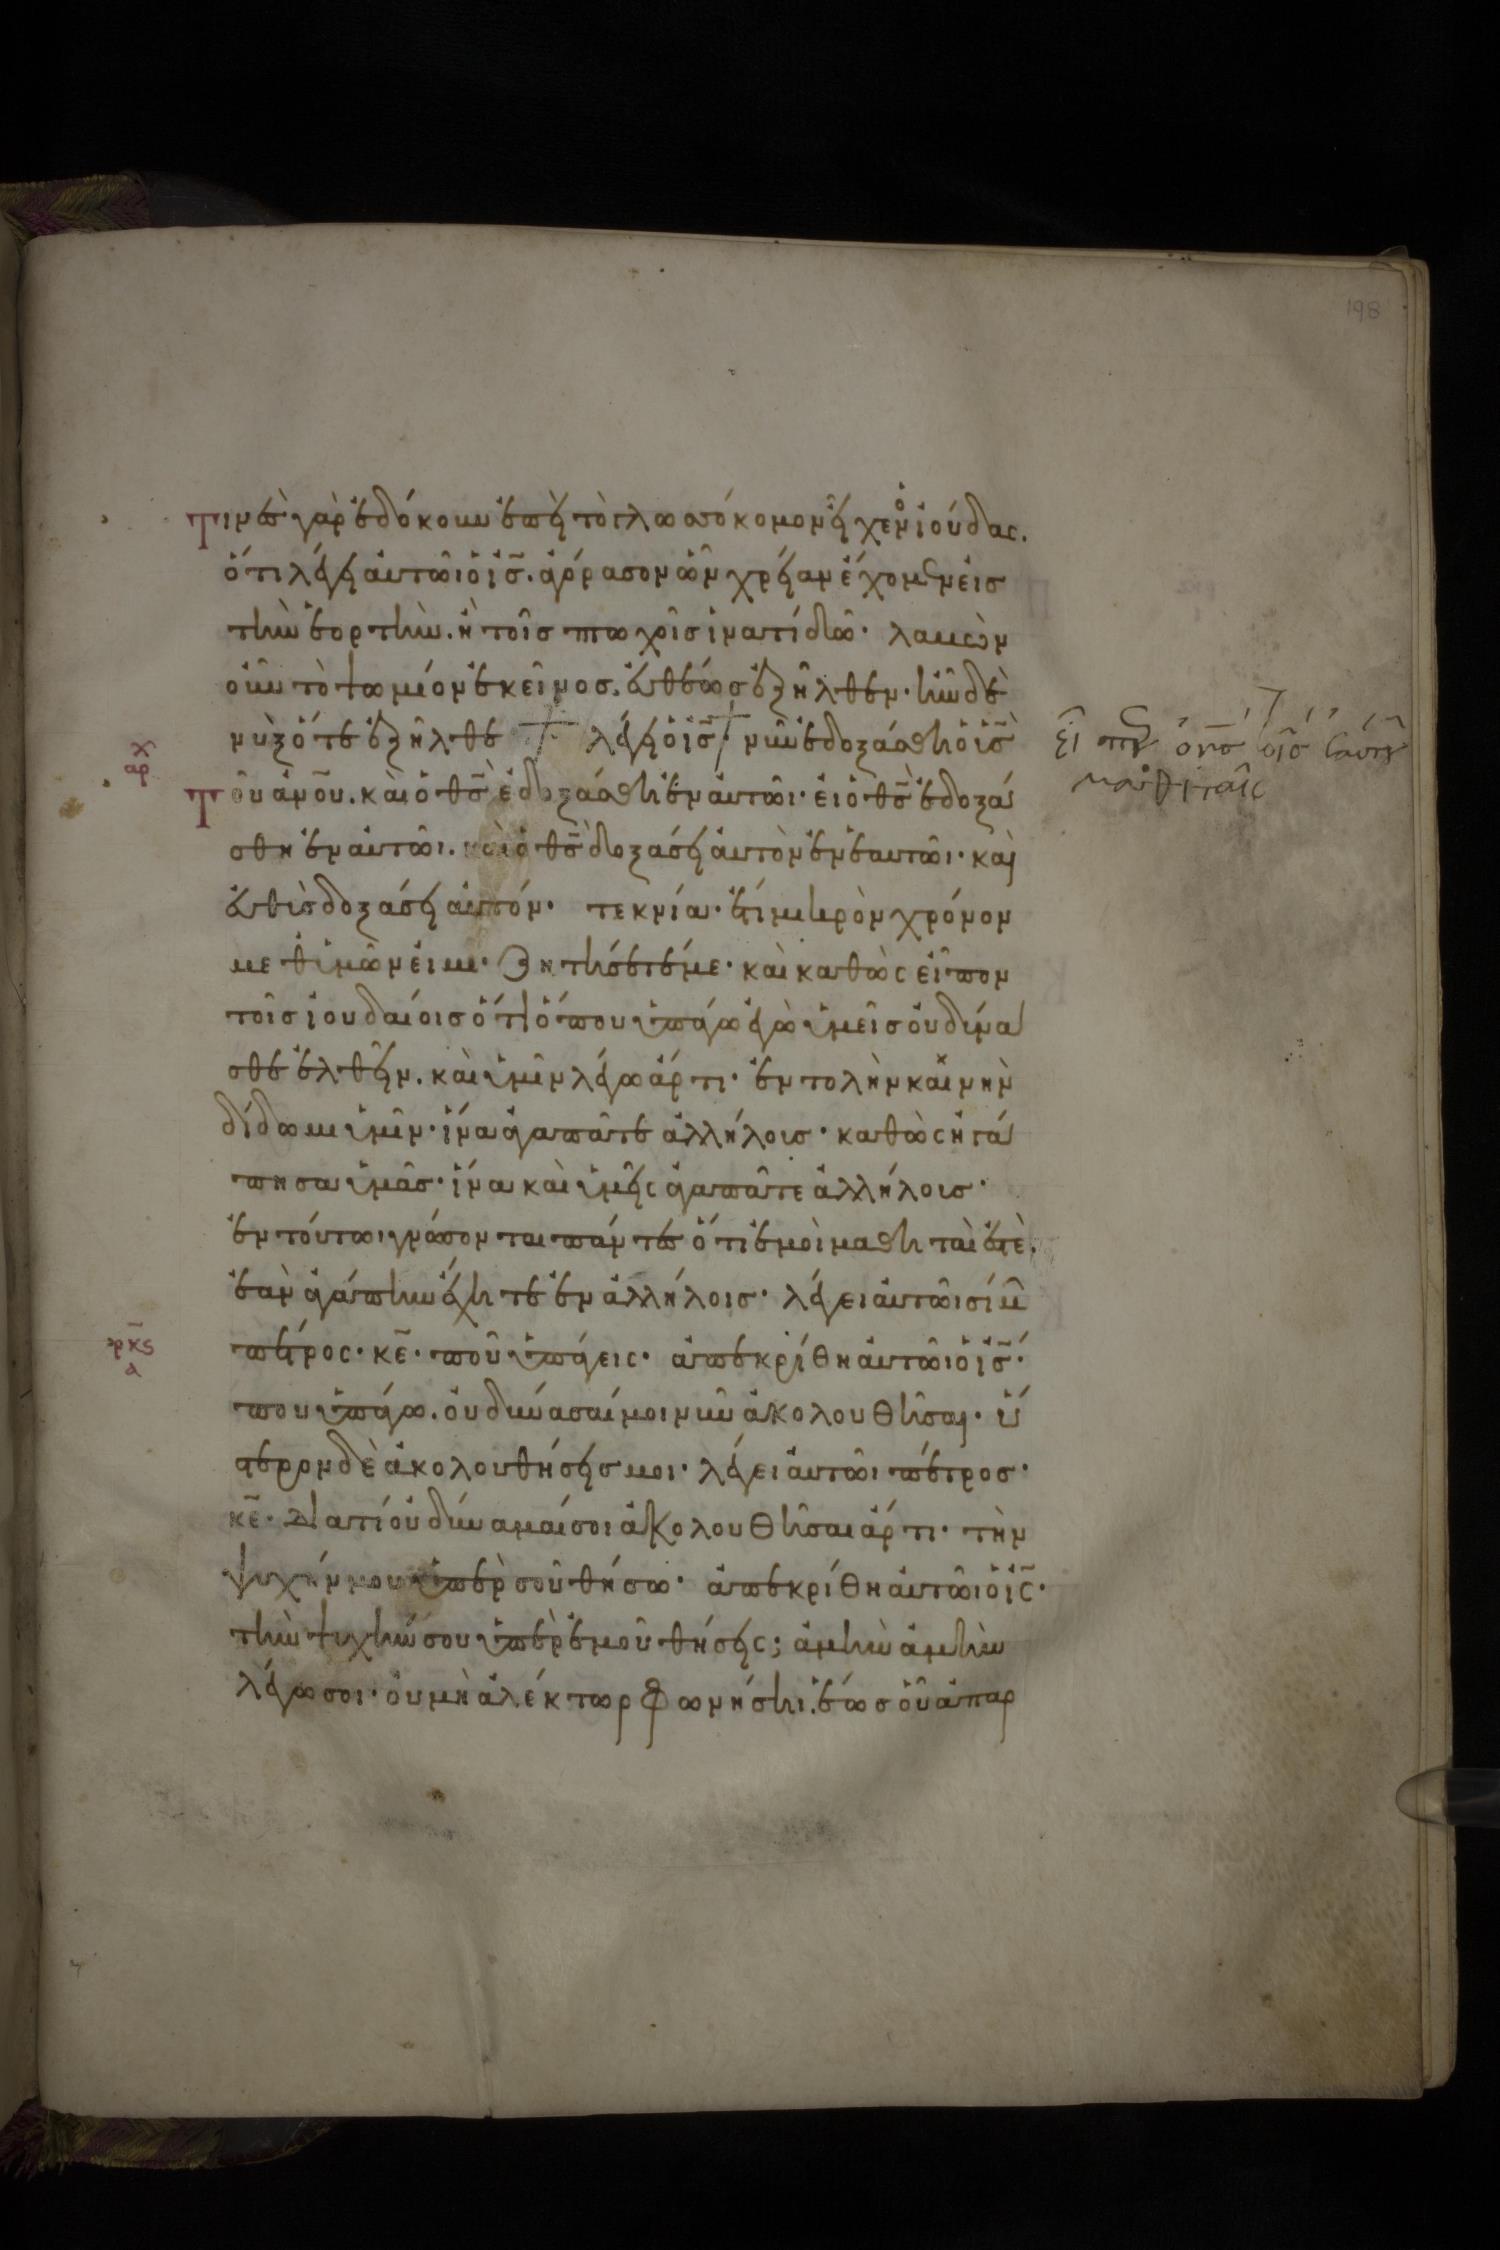 198
Τινὲς γὰρ ἐδόκουν ἐπεὶ τὸ γλωσσόκομον εἶχεν ὁ ἰούδας.
ὅτι λέγει ἀυτῶι ὁ ἰς̅. ἀγόρασον ὧν χρείαν ἔχομεν εἰς
τὴν ἑορτὴν. ἢ τοῖς πτωχοῖς ἵνα τί δῶ· λαβὼν
οὖν τὸ ψωμίον ἐκεῖνος. εὐθέως ἐξῆλθεν· ἦν δὲ
νὺξ ὅτε ἐξῆλθε + λέγει ὁ ἰς̅ + νῦν ἐδοξάσθη ὁ ὑς̅
εἶπεν ὁ κς̅
μαθηταῖς
χ
αρ
Τοῦ ἀνου̅. καὶ ὁ θς̅ ἐδοξάσθη ἐν αὐτῶι· εἰ ὁ θς̅ ἐδοξά
σθη ἐν αὐτῶι. καὶ ὁ θς̅ δοξάσει ἀυτὸν ἐν ἑαυτῶι· καὶ
ἐυθὺς δοξάσει αὐτόν· τεκνία· ἔτι μικρὸν χρόνον
μεθ ὑμῶν εἰμι· ζητήσετέ με· καὶ καθὼς εἶπον
τοῖς ἰουδαίοις ὅτι ὅπου ὑπάγω ἐγὼ ὑμεῖς οὐ δύνα
σθε ἐλθεῖν. καὶ ὑμῖν λέγω ἄρτι· ἐντολὴν καινὴν
δίδωμι ὑμῖν· ἵνα ἀγαπᾶτε ἀλλήλοις· καθὼς ἠγά
πησα ὑμᾶς· ἵνα καὶ ὑμεῖς ἀγαπᾶτε ἀλλήλοις·
ἐν τούτωι γνώσονται πάντες ὅτι ἐμοὶ μαθηταὶ ἐστὲ.
ἐὰν ἀγάπην ἔχητε ἐν ἀλλήλοις· λέγει ἀυτῶι σίμ
ρκϛ
α
πέτρος· κε̅· ποῦ ὑπάγεις· ἀπεκρίθη ἀυτῶι ὁ ἰς̅·
που ὑπάγω. ὀυ δύνασαί μοι νῦν ἀκολουθῆσαι· ὕ
στερον δὲ ἀκολουθήσεις μοι· λέγει ἀυτῶι πέτρος·
κε̅· διατί ὀυ δύναμαί σοι ἀκολουθῆσαι ἄρτι· τὴν
ψυχήν μου ὑπὲρ σοῦ θήσω· ἀπεκρίθη ἀυτῶι ὁ ἰς̅·
τὴν ψυχήν σου ὑπὲρ ἐμοῦ θήσεις; ἀμὴν ἀμὴν
λέγω σοι· ὀυ μὴ ἀλέκτωρ φωνήσηι. ἕως ὃῦ ἀπαρ